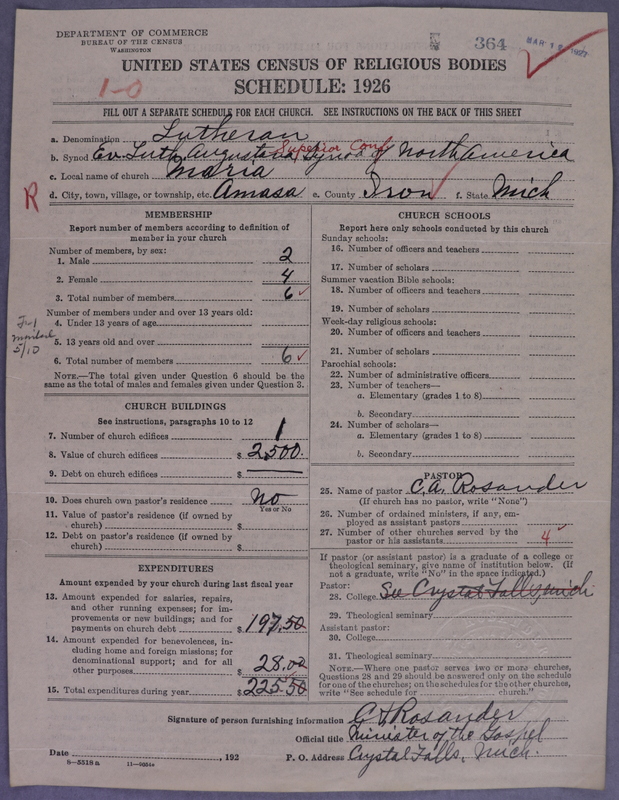 DEPARTMENT OF COMMERCE
BUREAU OF THE CENSUS
WASHINGTON
364
MAR 1 1927
UNITED STATES CENSUS OF RELIGIOUS BODIES
1-0
SCHEDULE: 1926
FILL OUT A SEPARATE SCHEDULE FOR EACH CHURCH. SEE INSTRUCTIONS ON THE BACK OF THIS SHEET
a. Denomination Lutheran
Superior Conf
b. Synod Ev. Luth. Augustana Synod of North America
c. Local name of church Maria
R
d. City, town, village, or township, etc. Amasa e. County Iron f. State Mich
MEMBERSHIP
Report number of members according to definition of
member in your church
Number of members, by sex:
1. Male 2
2. Female 4
3. Total number of members 6
Number of members under and over 13 years old:
4. Under 13 years of age
5. 13 years old and over
5/10
6. Total number of members 6
NOTE.—The total given under Question 6 should be the
same as the total of males and females given under Question 3.
CHURCH BUILDINGS
See instructions, paragraphs 10 to 12
7. Number of church edifices 1
8. Value of church edifices $ 2,500.
9. Debt on church edifices $
10. Does church own pastor's residence No
Yes or No
11. Value of pastor's residence (if owned by
church) $
12. Debt on pastor's residence (if owned by
church) $
EXPENDITURES
Amount expended by your church during last fiscal year
13. Amount expended for salaries, repairs,
and other running expenses; for im-
provements or new buildings; and for
payments on church debt $ 197.50
14. Amount expended for benevolences, in-
cluding home and foreign missions; for
denominational support; and for all
other purposes $ 28.00
15. Total expenditures during year $ 225.50
CHURCH SCHOOLS
Report here only schools conducted by this church
Sunday schools:
16. Number of officers and teachers
17. Number of scholars
Summer vacation Bible schools:
18. Number of officers and teachers
19. Number of scholars
Week-day religious schools:
20. Number of officers and teachers
21. Number of scholars
Parochial schools:
22. Number of administrative officers
23. Number of teachers—
a. Elementary (grades 1 to 8)
b. Secondary
24. Number of scholars—
a. Elementary (grades 1 to 8)
b. Secondary
PASTOR
25. Name of pastor C.A. Rosander
(If church has no pastor, write "None")
26. Number of ordained ministers, if any, em-
ployed as assistant pastors
27. Number of other churches served by the
pastor or his assistants 4
If pastor (or assistant pastor) is a graduate of a college or
theological seminary, give name of institution below. (If
not a graduate, write "No" in the space indicated.)
Pastor:
28. College See Crystal Falls, Mich
29. Theological seminary
Assistant pastor:
30. College
31. Theological seminary
NOTE.—Where one pastor serves two or more churches,
Questions 28 and 29 should be answered only on the schedule
for one of the churches; on the schedules for the other churches,
write "See schedule for church."
Signature of person furnishing information C A Rosander
Official title Minister of the Gospel
Date , 192
P. O. Address Crystal Falls, Mich.
8-5518 a 11-9054a